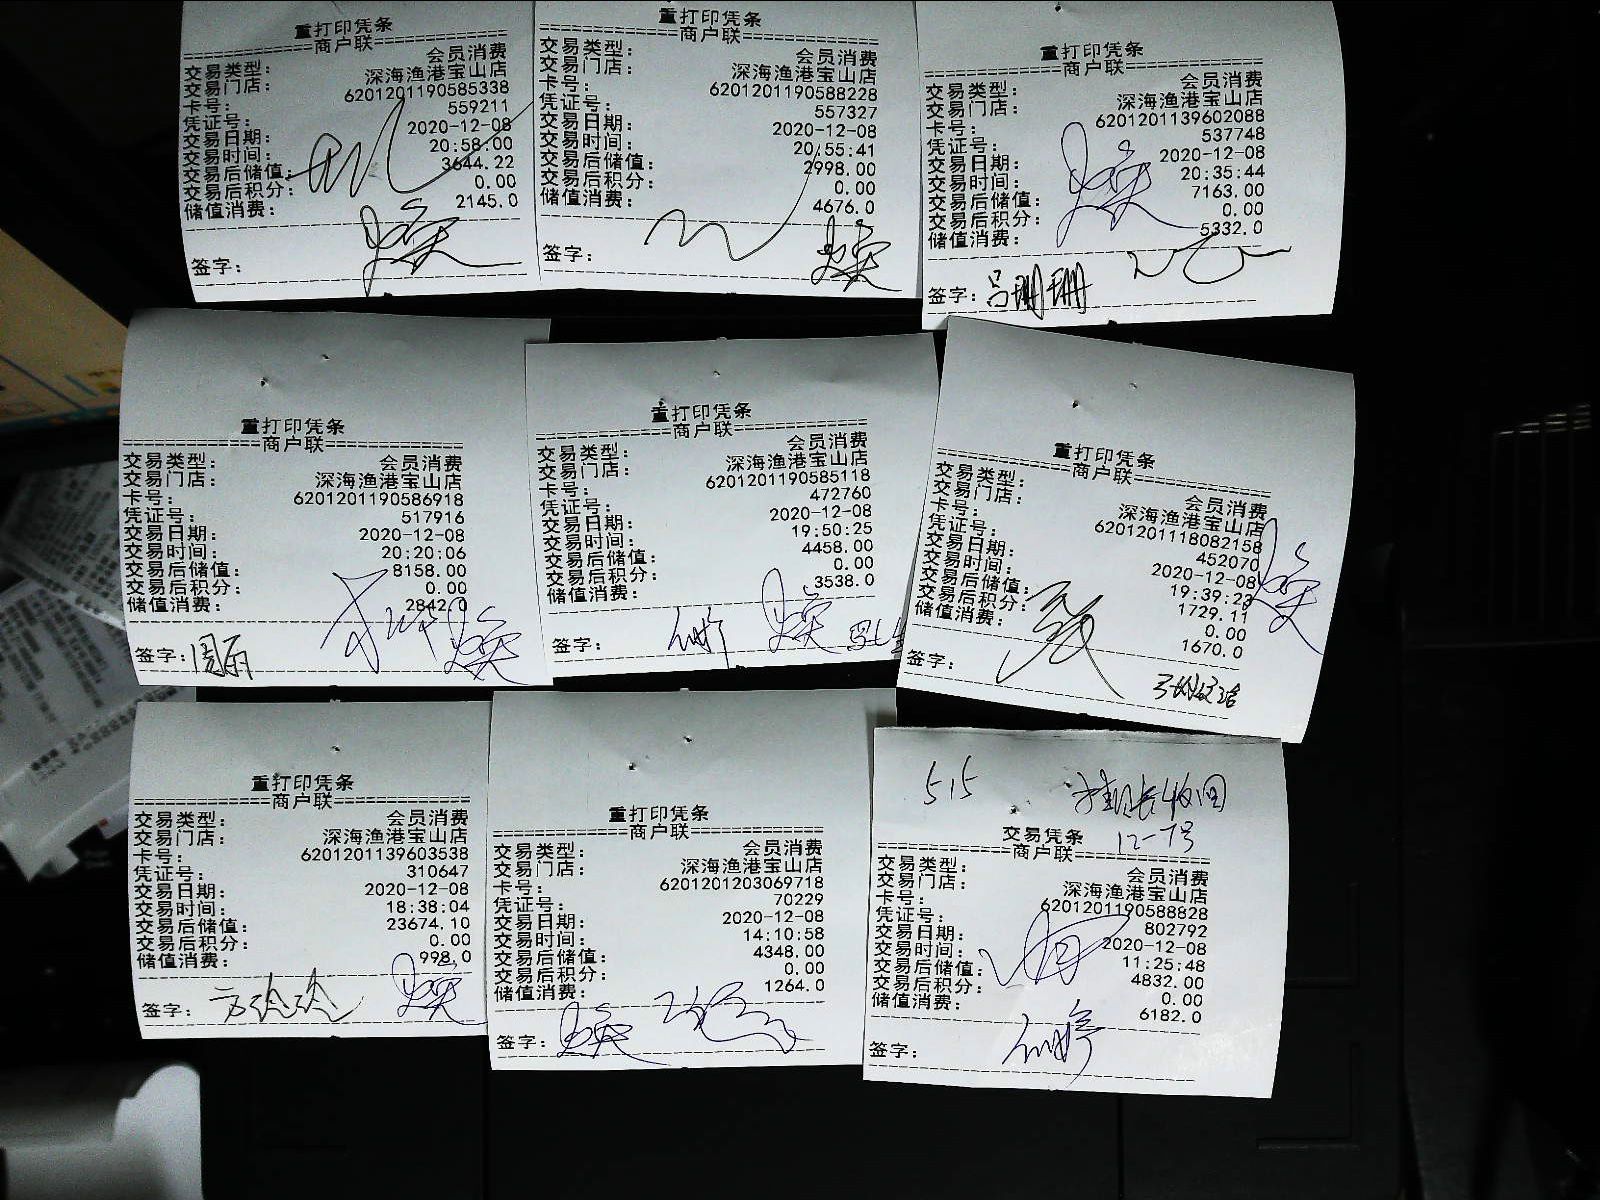 重打印凭条
商户联
交易类型: 会员消费
交易门店: 深海渔港宝山店
卡号: 6201201190585338
凭证号: 559211
交易日期: 2020-12-08
交易时间: 20:58:00
交易后储值: 3644.22
交易后积分: 0.00
储值消费: 2145.0
签字:
重打印凭条
商户联
交易类型: 会员消费
交易门店: 深海渔港宝山店
卡号: 6201201190588228
凭证号: 557327
交易日期: 2020-12-08
交易时间: 20:55:41
交易后储值: 2998.00
交易后积分: 0.00
储值消费: 4676.0
签字:
重打印凭条
商户联
交易类型: 会员消费
交易门店: 深海渔港宝山店
卡号: 6201201139602088
凭证号: 537748
交易日期: 2020-12-08
交易时间: 20:35:44
交易后储值: 7163.00
交易后积分: 0.00
储值消费: 5332.0
签字: 吕珊珊
重打印凭条
商户联
交易类型: 会员消费
交易门店: 深海渔港宝山店
卡号: 6201201190586918
凭证号: 517916
交易日期: 2020-12-08
交易时间: 20:20:06
交易后储值: 8158.00
交易后积分: 0.00
储值消费: 2842.0
签字: 周丽
重打印凭条
商户联
交易类型: 会员消费
交易门店: 深海渔港宝山店
卡号: 6201201190585118
凭证号: 472760
交易日期: 2020-12-08
交易时间: 19:50:25
交易后储值: 4458.00
交易后积分: 0.00
储值消费: 3538.0
签字:
重打印凭条
商户联
交易类型: 会员消费
交易门店: 深海渔港宝山店
卡号: 6201201118082158
凭证号: 452070
交易日期: 2020-12-08
交易时间: 19:39:23
交易后储值: 1729.11
交易后积分: 0.00
储值消费: 1670.0
签字:
重打印凭条
商户联
交易类型: 会员消费
交易门店: 深海渔港宝山店
卡号: 6201201139603538
凭证号: 310647
交易日期: 2020-12-08
交易时间: 18:38:04
交易后储值: 23674.10
交易后积分: 0.00
储值消费: 998.0
签字:
重打印凭条
商户联
交易类型: 会员消费
交易门店: 深海渔港宝山店
卡号: 6201201203069718
凭证号: 70229
交易日期: 2020-12-08
交易时间: 14:10:58
交易后储值: 4348.00
交易后积分: 0.00
储值消费: 1264.0
签字:
515
交易凭条 12-7号
商户联
交易类型: 会员消费
交易门店: 深海渔港宝山店
卡号: 6201201190588828
凭证号: 802792
交易日期: 2020-12-08
交易时间: 11:25:48
交易后储值: 4832.00
交易后积分: 0.00
储值消费: 6182.0
签字: